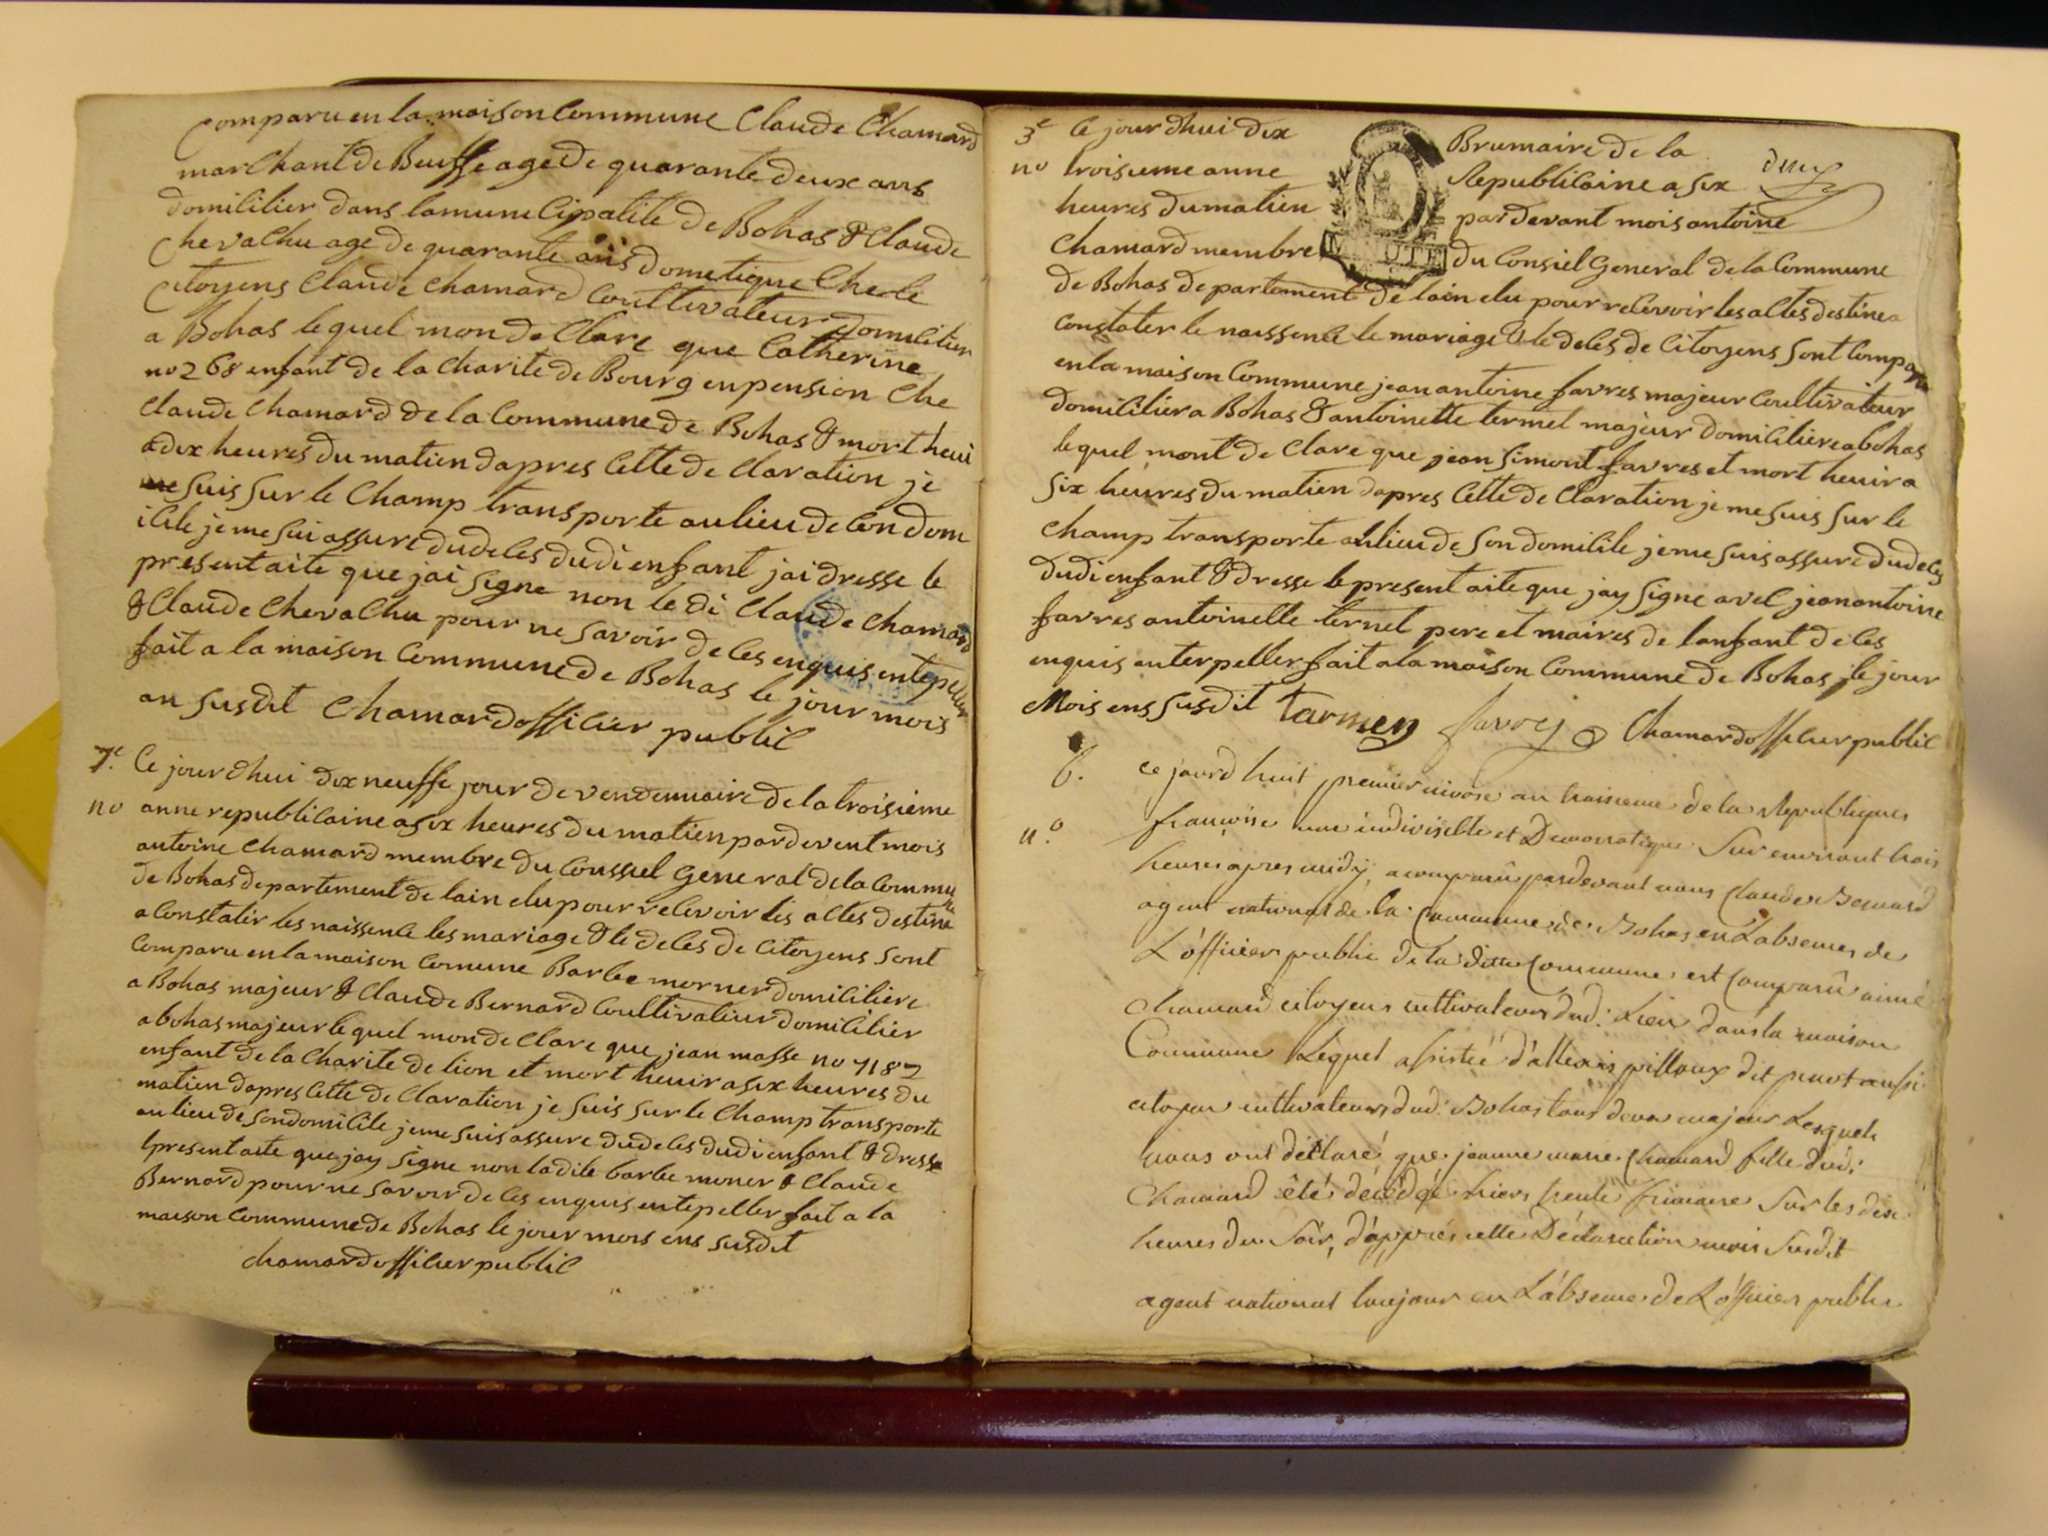 Comparu en la maison Commune Claude Chamard
marchant de Beuffe age de quarante deux ans
domicilier dans la municipalite de Bohas & Claude
Chevachu age de quarante ans dometique Che le
Citoyens Claude Chamard Coultivateur domicilier
a Bohas lequel mon de Clare que Catherine
no 268 enfant de la Charite de Bourg en pension Che
Claude Chamard de la Commune de Bohas & mort heui
a dix heures du matien dapres Cette de Claration je
me suis sur le Champ transporte au lieu de Con dom
icile je me sui assure du deces dudi enfant jai dresse le
present aite que jai signe non le di Claude Chamard
& Claude Chevachu pour ne savoir de ces enquis entepeller
fait a la maison Commune de Bohas le jour mois
an susdit Chamard officier public
7e Ce jourdhui dix neuffe jour de vendemiaire de la troisieme
no anne republicaine a six heures du matien pardevent mois
antoine Chamard membre du Conssiel General de la Commune
de Bohas departement de lain elu pour recevoir les actes destine
a Constatir les naissence les mariage & le deces de Citoyens sont
Comparu en la maison Comune Barbe morner domiciliere
a Bohas majeur & Claude Bernard Coultivatiur domicilier
a bohas majeur lequel mon de Clare que jean masse no 7187
enfant de la Charite de lion et mort heuir a six heures du
matien dapres Cette de Claration je suis sur le Champ transporte
au lieu de son domicile je me suis assure du deces dudi enfant & dresse
lpresent aite que jay signe non ladite barbe moner & Claude
Bernard pour ne savoir de ces enquis entepeller fait a la
maison Commune de Bohas le jour mois ens susdit
chamard officier public
3e Ce jourdhui dix Brumaire de la
no troisieme anne Republicaine a six
heures du matien par devant mois antoine
Chamard membre du Consiel General de la Commune
de Bohas departement de lain elu pour recevoir les actes destine a
Constater le naissence le mariage & le deces de Citoyens sont Comparu
en la maison Commune jean antoine favres majeur Coultivateur
domicilier a Bohas & antoinette termel majeur domiciliere a bohas
lequel mont de Clare que jean simont favres et mort heuir a
six heures du matien dapres Cette de Claration je me suis sur le
Champ transporte au lieu de son domicile je me suis assure du deces
dudi enfant & dresse le present aite que jay signe avec jean antoine
favres antoinette ternet pere et maires de lanfant de ces
enquis enterpeller fait a la maison Commune de Bohas le jour
Mois ens susdit tarmey favrey Chamard officier public
8. ce jourd huit premier nivose an troisieme de la Republiques
n.o françoise une indivisible et Democratique Sur environt trois
heures apres midy, a comparû pardevant nous Claude Bernard
agent national de la Commune de Bohas en L'absence de
L'officier public de la ditte Commune est Comparû aimé
Chamard citoyens cultivateur dud: Lieu dans la maison
Commune Lequel assistéé d'allexis pilloux dit aussi
citoyen cultivateurs dud: Bohas tous deux majeur Lesquels
nous ont déclaré que jeanne marie Chamard fille dud:
Chamard été décédée hiers trente frimaire Sur les dix
heures du Soir, d'apprés cette Déclaration mois Susdit
agent national toujour en L'absence de L'officier public